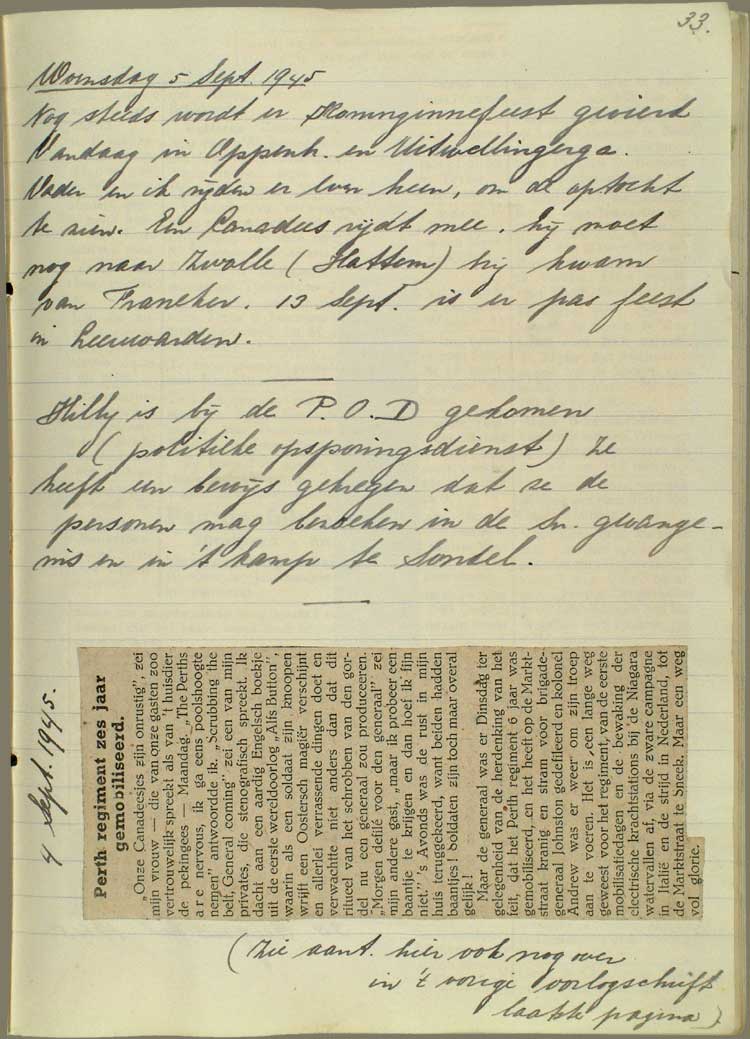 33.
Woensdag 5 Sept. 1945
Nog steeds wordt er Koninginnefeest gevierd
Vandaag in Oppenh. en Uitwellingerga.
Vader en ik rijden er even heen, om de optocht
te zien. Een Canadees rijdt mee. hij moet
nog naar Zwolle (Hattem) hij kwam
van Franeker. 13 Sept. is er pas feest
in Leeuwarden.
Hilly is bij de P.O.D gekomen
(politieke opsporingsdienst) Ze
heeft een bewijs gekregen dat ze de
personen mag bezoeken in de Sn. gevange-
nis en in 't kamp te Sondel.
4 Sept. 1945.
Perth regiment zes jaar
gemobiliseerd.
„Onze Canadeesjes zijn onrustig", zei
mijn vrouw — die van onze gasten zoo
vertrouwelijk spreekt als van 't huisdier
de pekingees — Maandag. „The Perths
are nervous, ik ga eens poolshoogte
nemen" antwoordde ik. „Scrubbing the
belt, General coming" zei een van mijn
privates, die stenografisch spreekt. Ik
dacht aan een aardig Engelsch boekje
uit de eerste wereldoorlog „Alfs Button",
waarin als een soldaat zijn knoopen
wrijft een Oostersch magiër verschijnt
en allerlei verrassende dingen doet en
verwachtte niet anders dan dat dit
ritueel van het schrobben van den gor-
del nu een generaal zou produceeren.
„Morgen defilé voor den generaal" zei
mijn andere gast, „maar ik probeer een
baantje te krijgen en dan hoef ik fijn
niet." 's Avonds was de rust in mijn
huis teruggekeerd, want beiden hadden
baantjes! Soldaten zijn toch maar overal
gelijk!
Maar de generaal was er Dinsdag ter
gelegenheid van de herdenking van het
feit, dat het Perth regiment 6 jaar was
gemobiliseerd, en het heeft op de Markt-
straat kranig en stram voor brigade-
generaal Johnston gedefileerd en kolonel
Andrew was er weer om zijn troep
aan te voeren. Het is een lange weg
geweest voor het regiment, van de eerste
mobilisatiedagen en de bewaking der
electrische krachtstations bij de Niagara
watervallen af, via de zware campagne
in Italië en de strijd in Nederland, tot
de Marktstraat te Sneek. Maar een weg
vol glorie.
(Zie aant. hier ook nog over
in 't vorige oorlogschrift
laatste pagina)